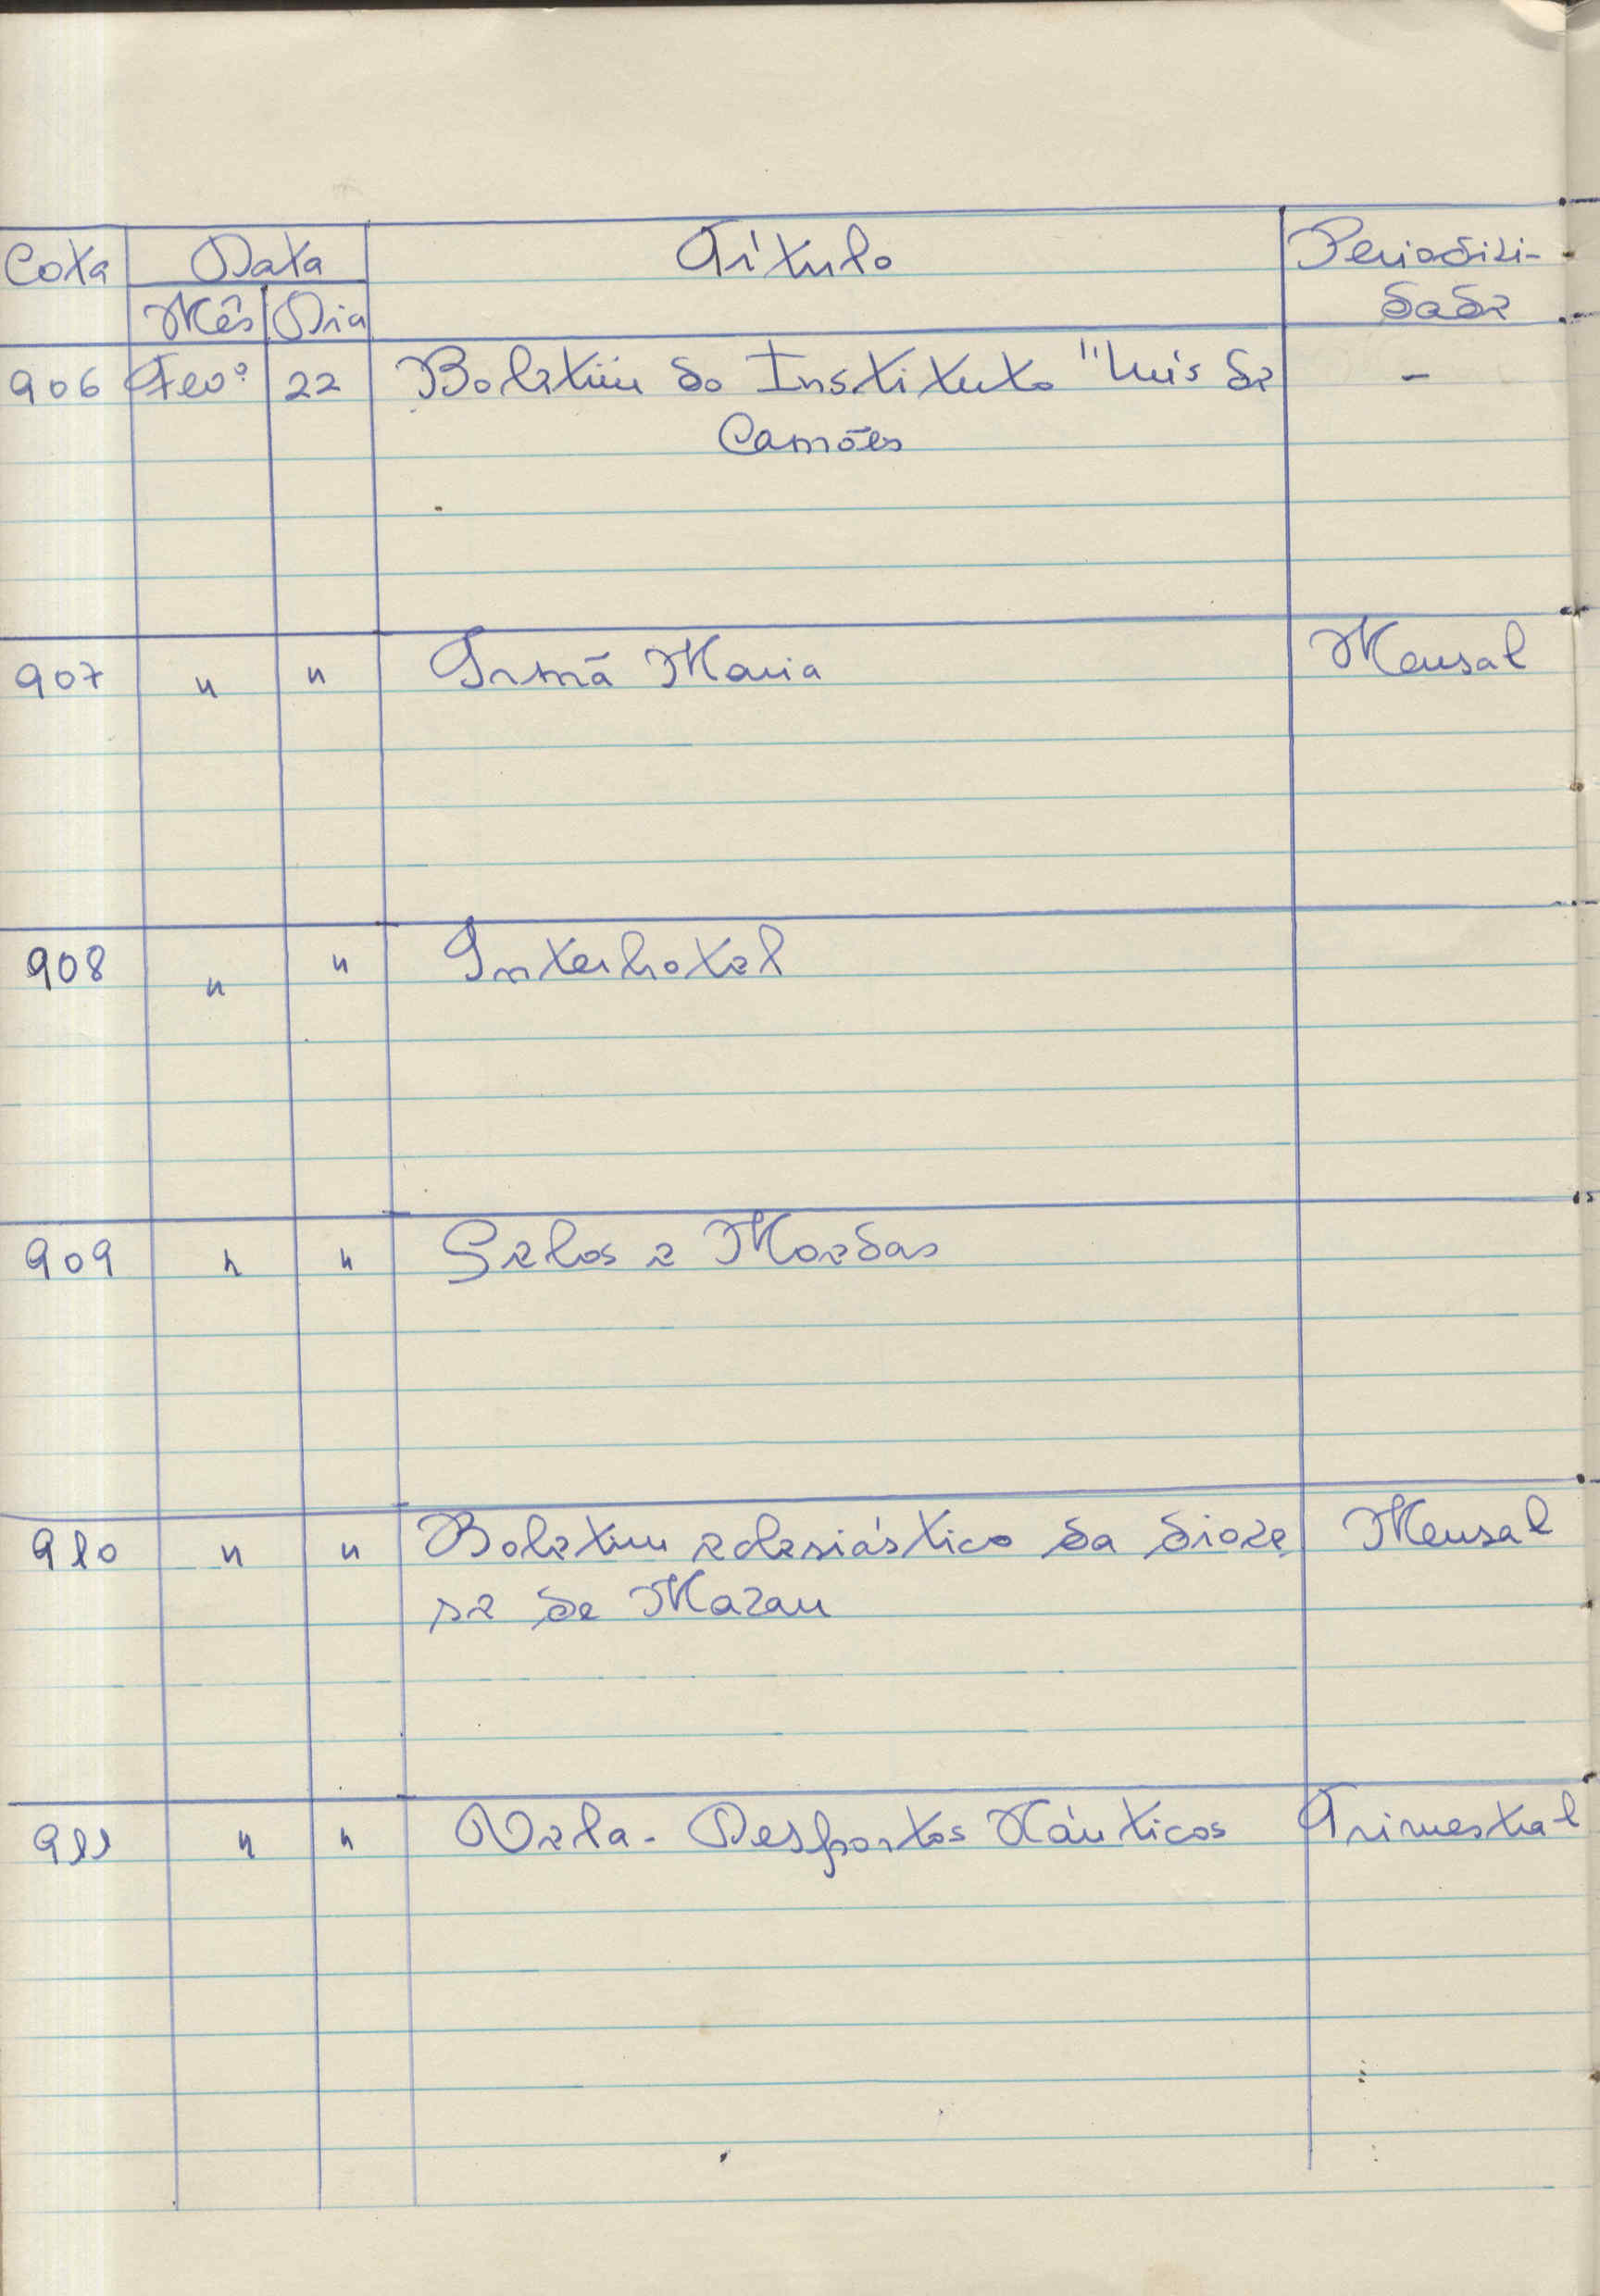 Cota Data Título Periodici-
Mês Dia dade
906 Fevº 22 Boletim do Instituto "Luís de -
Camões
907 " " Irmã Maria Mensal
908 " " Interhotel
909 " " Selos e Moedas
910 " " Boletim eclesiástico da dioce Mensal
se de Macau
911 " " Vela - Desportos Náuticos Trimestral